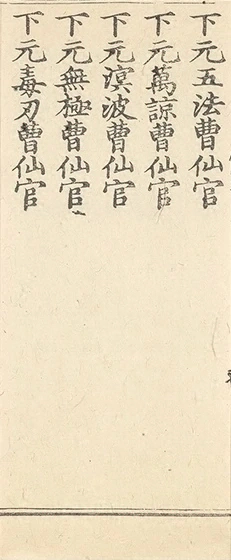 下元五法曹仙官
下元萬諒曹仙官
下元溟波曹仙官
下元無極曹仙官
下元毒刃曹仙官